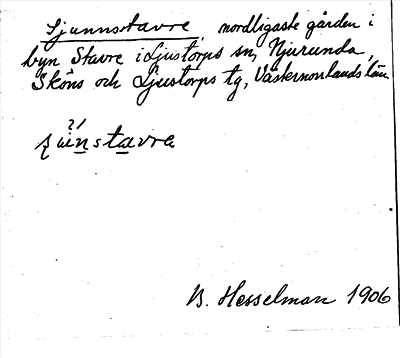 Sjunnsstavre, nordligaste gården i
byn Stavre i Ljustorps sn, Njurunda,
Sköns och Ljustorps tg, Västernorrlands län.
B. Hesselman 1906